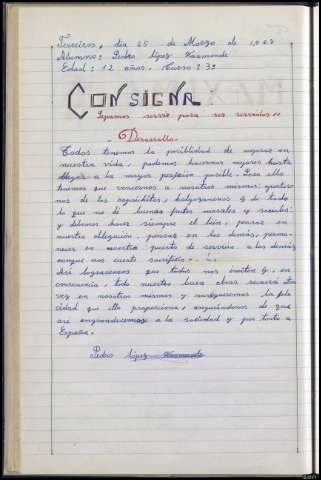 Terreros, día 25 de Marzo de 1.967
Alumno: Pedro López
Edad: 12 años. Curso: 3º
CONSIGNA
Sepamos servir para ser servidos."
-Desarrollo-
Todos tenemos la posibilidad de mejorar en
nuestra vida, podemos hacernos mejores hasta
llegar a la mayor perfección posible. Para ello
tenemos que vencernos a nosotros mismos:
nos de los caprichitos, holgazaneria y de todo
lo que no dé buenos frutos morales y sociales.
y debemos hacer siempre el bien, pensar en
nuestra obligación, pensar en los demás, perma-
necer en nuestro puesto de servicio a los demás
aunque nos cueste sacrificio.
Así lograremos que todos nos imiten y, en
consecuencia, toda nuestra buena obra recaerá otra
vez en nosotros mismos y conseguiremos la feli-
cidad que ello proporciona, enseñándonos de que
así engrandecemos a la sociedad y por tanto a
España.
Pedro López